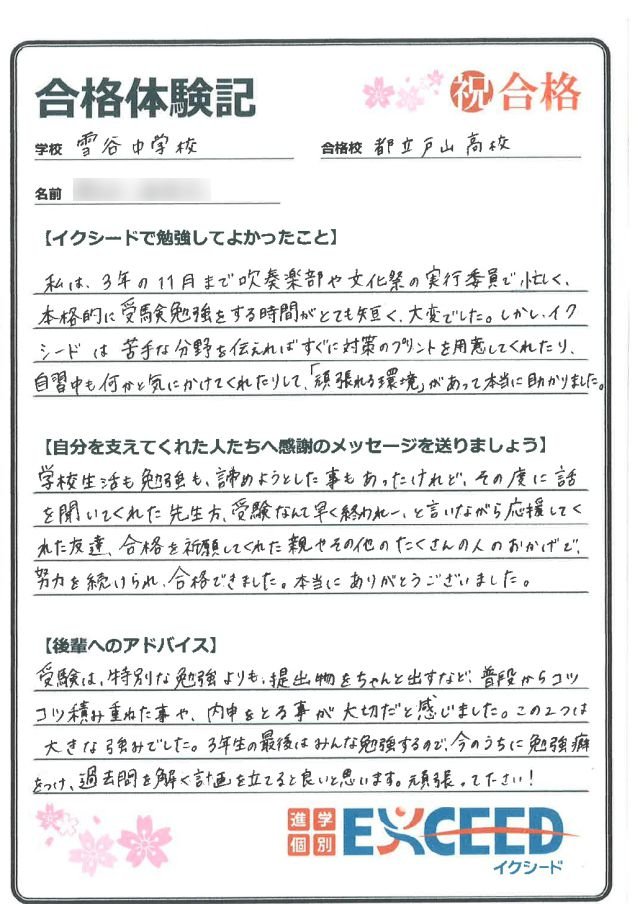 合格体験記
祝 合格
学校 雪谷中学校
合格校 都立戸山高校
名前
【イクシードで勉強してよかったこと】
私は、3年の11月まで吹奏楽部や文化祭の実行委員で忙しく、
本格的に受験勉強をする時間がとても短く、大変でした。しかし、イク
シードは苦手な分野を伝えればすぐに対策のプリントを用意してくれたり、
自習中も何かと気にかけてくれたりして、「頑張れる環境」があって本当に助かりました。
【自分を支えてくれた人たちへ感謝のメッセージを送りましょう】
学校生活も勉強も、諦めようとした事もあったけれど、その度に話
を聞いてくれた先生方、受験なんて早く終われー、と言いながら応援してく
れた友達、合格を祈願してくれた親やその他のたくさんの人のおかげで、
努力を続けられ、合格できました。本当にありがとうございました。
【後輩へのアドバイス】
受験は、特別な勉強よりも、提出物をちゃんと出すなど、普段からコツ
コツ積み重ねた事や、内申をとる事が大切だと感じました。この2つは
大きな強みでした。3年生の最後はみんな勉強するので、今のうちに勉強癖
をつけ、過去問を解く計画を立てると良いと思います。頑張ってださい!
進学
個別
EXCEED
イクシード